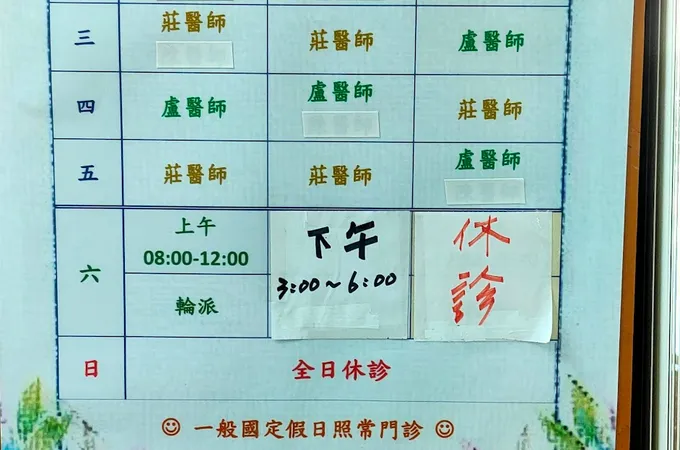 三 莊醫師 莊醫師 盧醫師
四 盧醫師 盧醫師 莊醫師
五 莊醫師 莊醫師 盧醫師
六
上午
08:00-12:00
輪派
下午
3:00~6:00
休
診
日 全日休診
一般國定假日照常門診